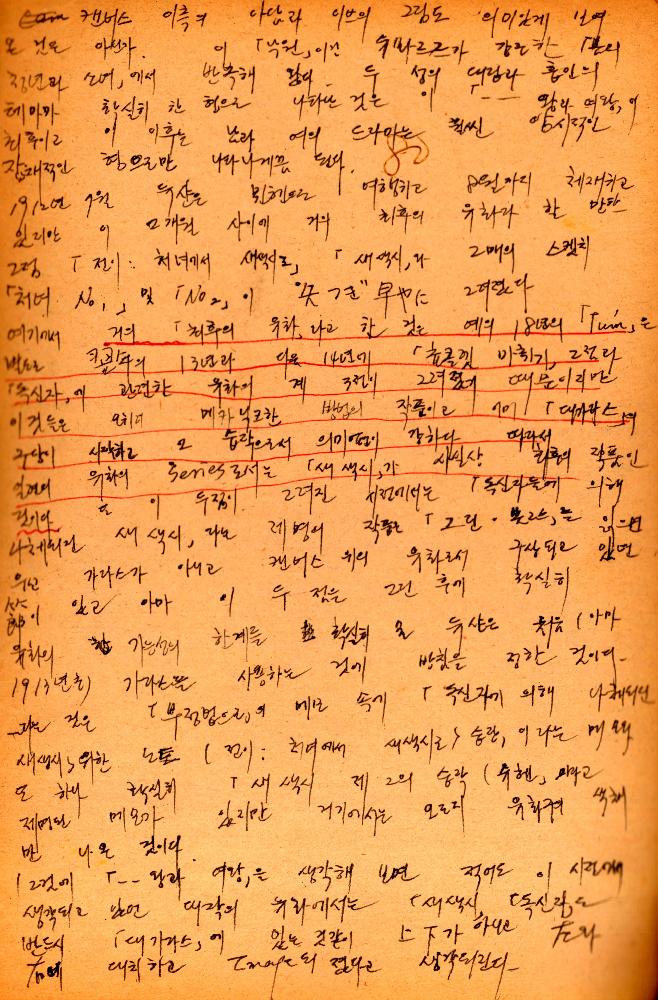 캔버스 이측의 아담과 이브의 그림도 의미있게 보여
온 것은 아닌가. 이 「낙원」이건 뒤파르크가 강조한 「봄의
청년과 소녀」에서 반복해 왔다. 두 성의 대립과 혼인의
테마가 확실히 한 형으로 나타난 것은 이 --- 왕과 여왕, 이
최후이고 이 이후는 남과 여의 드라마는 훨씬 암시적인
잠재적인 형으로만 나타나게끔 된다.
1912년 7월 뒤샹은 뮌헨으로 여행하고 8월까지 체재하고
있지만 이 2개월 사이에 거의 최후의 유화라 할 만한
그림 「전이: 처녀에서 새색시로」 「새색시」와 2매의 스케치
「처녀 No1」 및 「No2」이 早や 그려졌다
여기서 거의 「최후의 유화」라고 한 것은 예의 18년의 「Tum」은
별도로 13년과 다음 14년에 「초콜릿 마쇄기」 그것과
「독신자」에 관련한 유화의 계 3점이 그려졌기 때문이지만
이것들은 오히려 메카닉크한 방법의 작품이고 이미 「대가라스」의
구상이 시작하고 그 습작으로서 의미연이 강하다 따라서
일련의 유화의 Series로서는 「새색시」가 사실상 최후의 작품인
것이다 또 이 두점이 그려진 시점에서는 「독신자들에 의해
나체되린 새색시」라는 제명의 작품은 「그린·복스」를 읽으면
의선 가라스가 아니고 캔버스 위의 유화로서 구상되고 있던
節이 있고 아마 이 두 점을 그린 후에 확실히
유화의 가능성의 한계를 확실히 한 뒤샹은 처음 (아마
1913년초) 가라스를 사용하는 것에 방침을 정한 것이다.
라는 것은 「부정법으로」의 메모 속에 「독신자에 의해 나체되린
새색시」를 위한 노트 (전이: 처녀에서 새색시로) 승락, 이라는 메모와
또 하나 확실히 「새색시 제 2의 승락 (뮌헨」이라고
제명된 메모가 있지만 거기에서는 오로지 유화구의 색채
만 나온 것이다
(그것에 「--왕과 여왕」은 생각해 보면 적어도 이 시점에서
생각되고 있던 대작의 유화에서는 「새색시」 「독신자」도
반드시 「대가라스」에 있는 것같이 上下가 아니고 左와
右에 대치하고 Image되 졌다고 생각되린다-